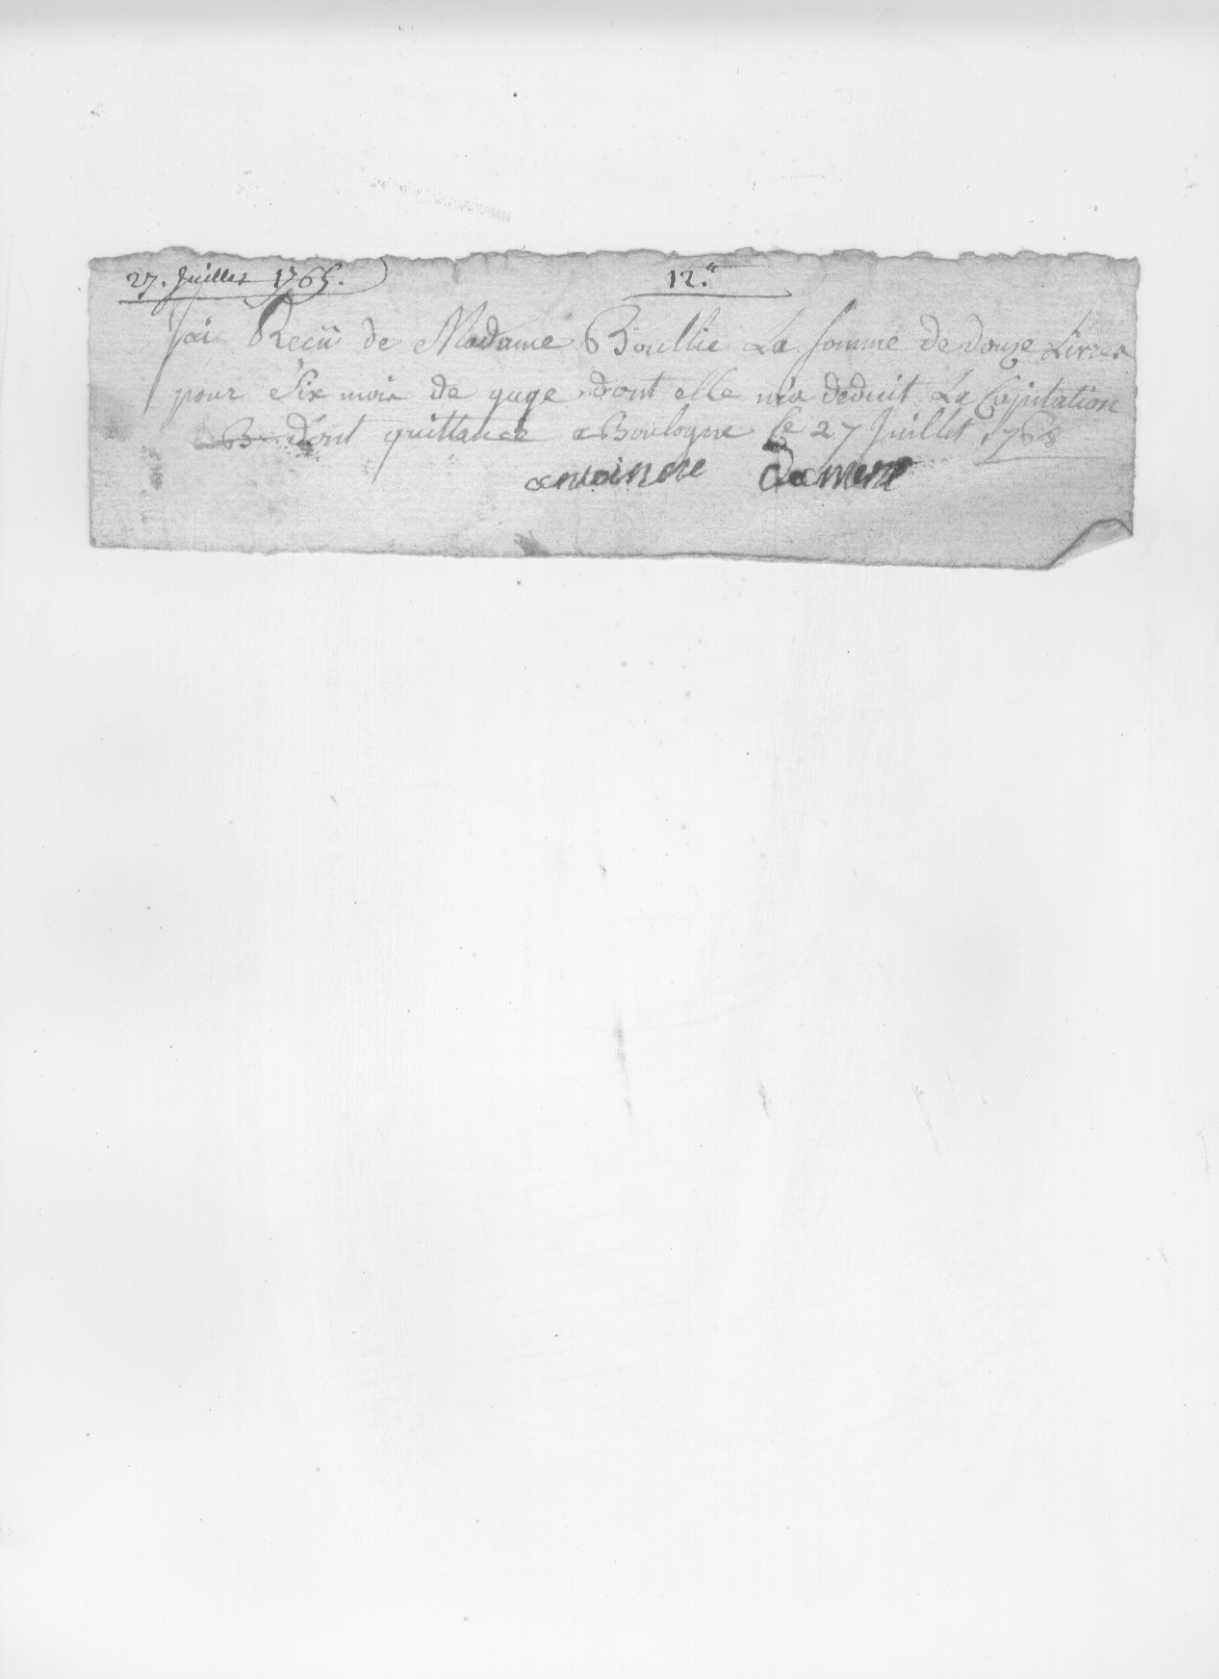 27. Juillet 1765. 12.″
J'ai Recü de Madame Boullie La somme de douze Livres
pour Six mois de gage dont elle m'a deduit La Capitation
dont quittance a Boulogne Ce 27 Juillet 1765